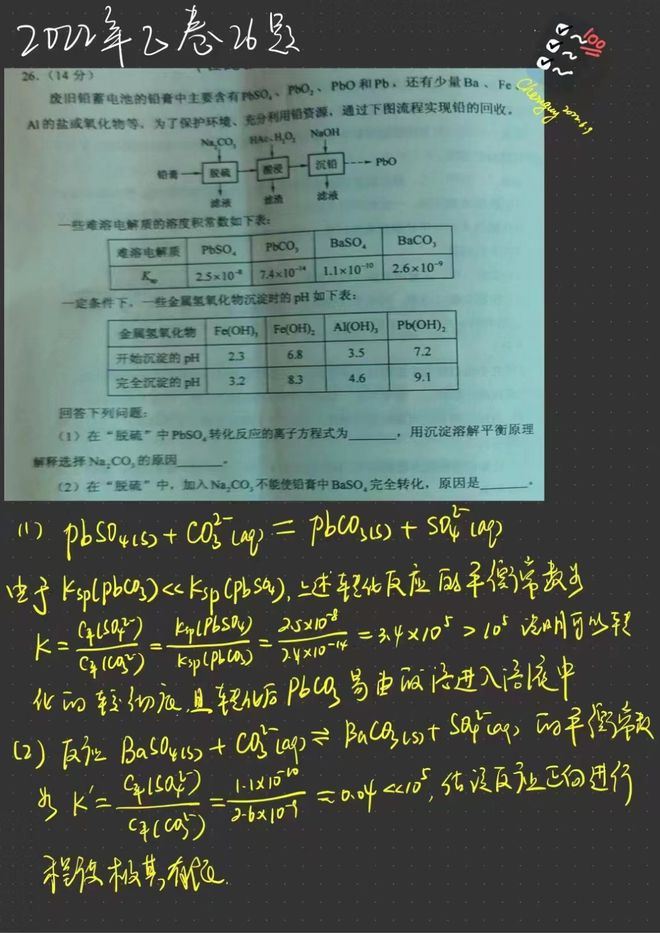 2022年乙卷26题
100
26.（14分）
废旧铅蓄电池的铅膏中主要含有PbSO₄、PbO₂、PbO和Pb，还有少量Ba、Fe、
Al的盐或氧化物等，为了保护环境、充分利用铅资源，通过下图流程实现铅的回收。
Na₂CO₃ HAc、H₂O₂ NaOH
铅膏 脱硫 酸浸 沉铅 PbO
滤液 滤渣 滤液
一些难溶电解质的溶度积常数如下表：
难溶电解质 PbSO₄ PbCO₃ BaSO₄ BaCO₃
Ksp 2.5×10⁻⁸ 7.4×10⁻¹⁴ 1.1×10⁻¹⁰ 2.6×10⁻⁹
一定条件下，一些金属氢氧化物沉淀时的pH如下表：
金属氢氧化物 Fe(OH)₃ Fe(OH)₂ Al(OH)₃ Pb(OH)₂
开始沉淀的pH 2.3 6.8 3.5 7.2
完全沉淀的pH 3.2 8.3 4.6 9.1
回答下列问题：
（1）在“脱硫”中PbSO₄转化反应的离子方程式为______，用沉淀溶解平衡原理
解释选择Na₂CO₃的原因______。
（2）在“脱硫”中，加入Na₂CO₃不能使铅膏中BaSO₄完全转化，原因是______。
(1) PbSO₄(s) + CO₃²⁻(aq) = PbCO₃(s) + SO₄²⁻(aq)
由于 Ksp(PbCO₃) << Ksp(PbSO₄), 上述转化反应的平衡常数为
K = C平(SO₄²⁻)/C平(CO₃²⁻) = Ksp(PbSO₄)/Ksp(PbCO₃) = 2.5×10⁻⁸/7.4×10⁻¹⁴ = 3.4×10⁵ > 10⁵ 说明可以转
化的较彻底，且转化后PbCO₃易由酸浸进入溶液中
(2) 反应 BaSO₄(s) + CO₃²⁻(aq) ⇌ BaCO₃(s) + SO₄²⁻(aq) 的平衡常数
为 K' = C平(SO₄²⁻)/C平(CO₃²⁻) = 1.1×10⁻¹⁰/2.6×10⁻⁹ ≈ 0.04 << 10⁵, 反应正向进行
程度极其有限.